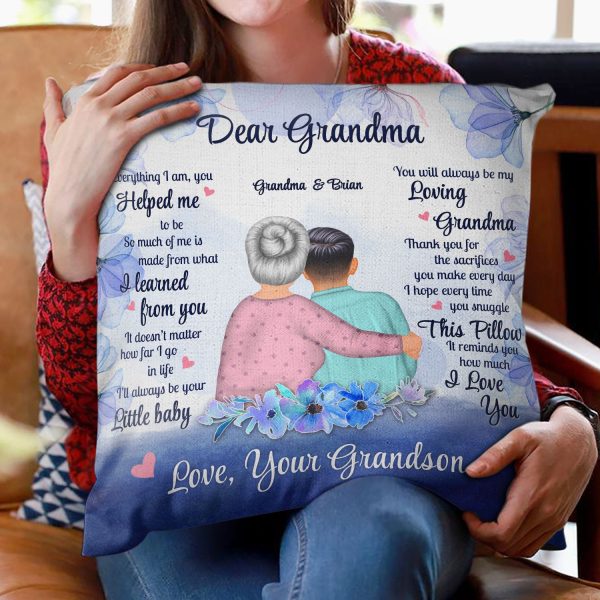 Dear Grandma
Everything I am, you
Helped me
to be
So much of me is
made from what
I learned
from you
It doesn't matter
how far I go
in life
I'll always be your
Little baby
Grandma & Brian
You will always be my
Loving
Grandma
Thank you for
the sacrifices
you make every day
I hope every time
you snuggle
This Pillow
It reminds you
how much
I Love
You
Love, Your Grandson